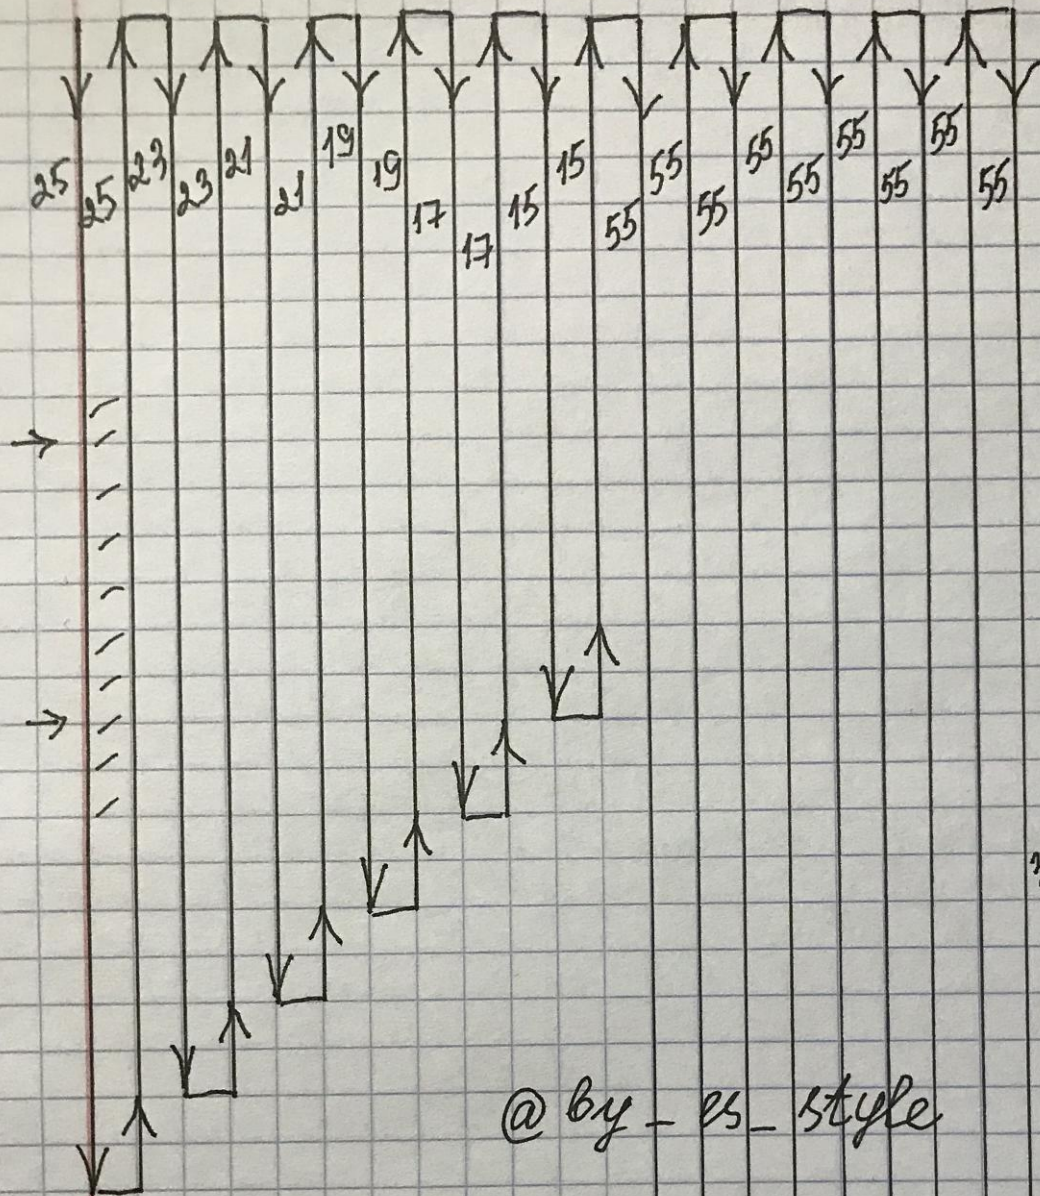 25 25 23 23 21 21 19 19 17 17 15 15 55 55 55 55 55 55 55 55 55
@by_es_style